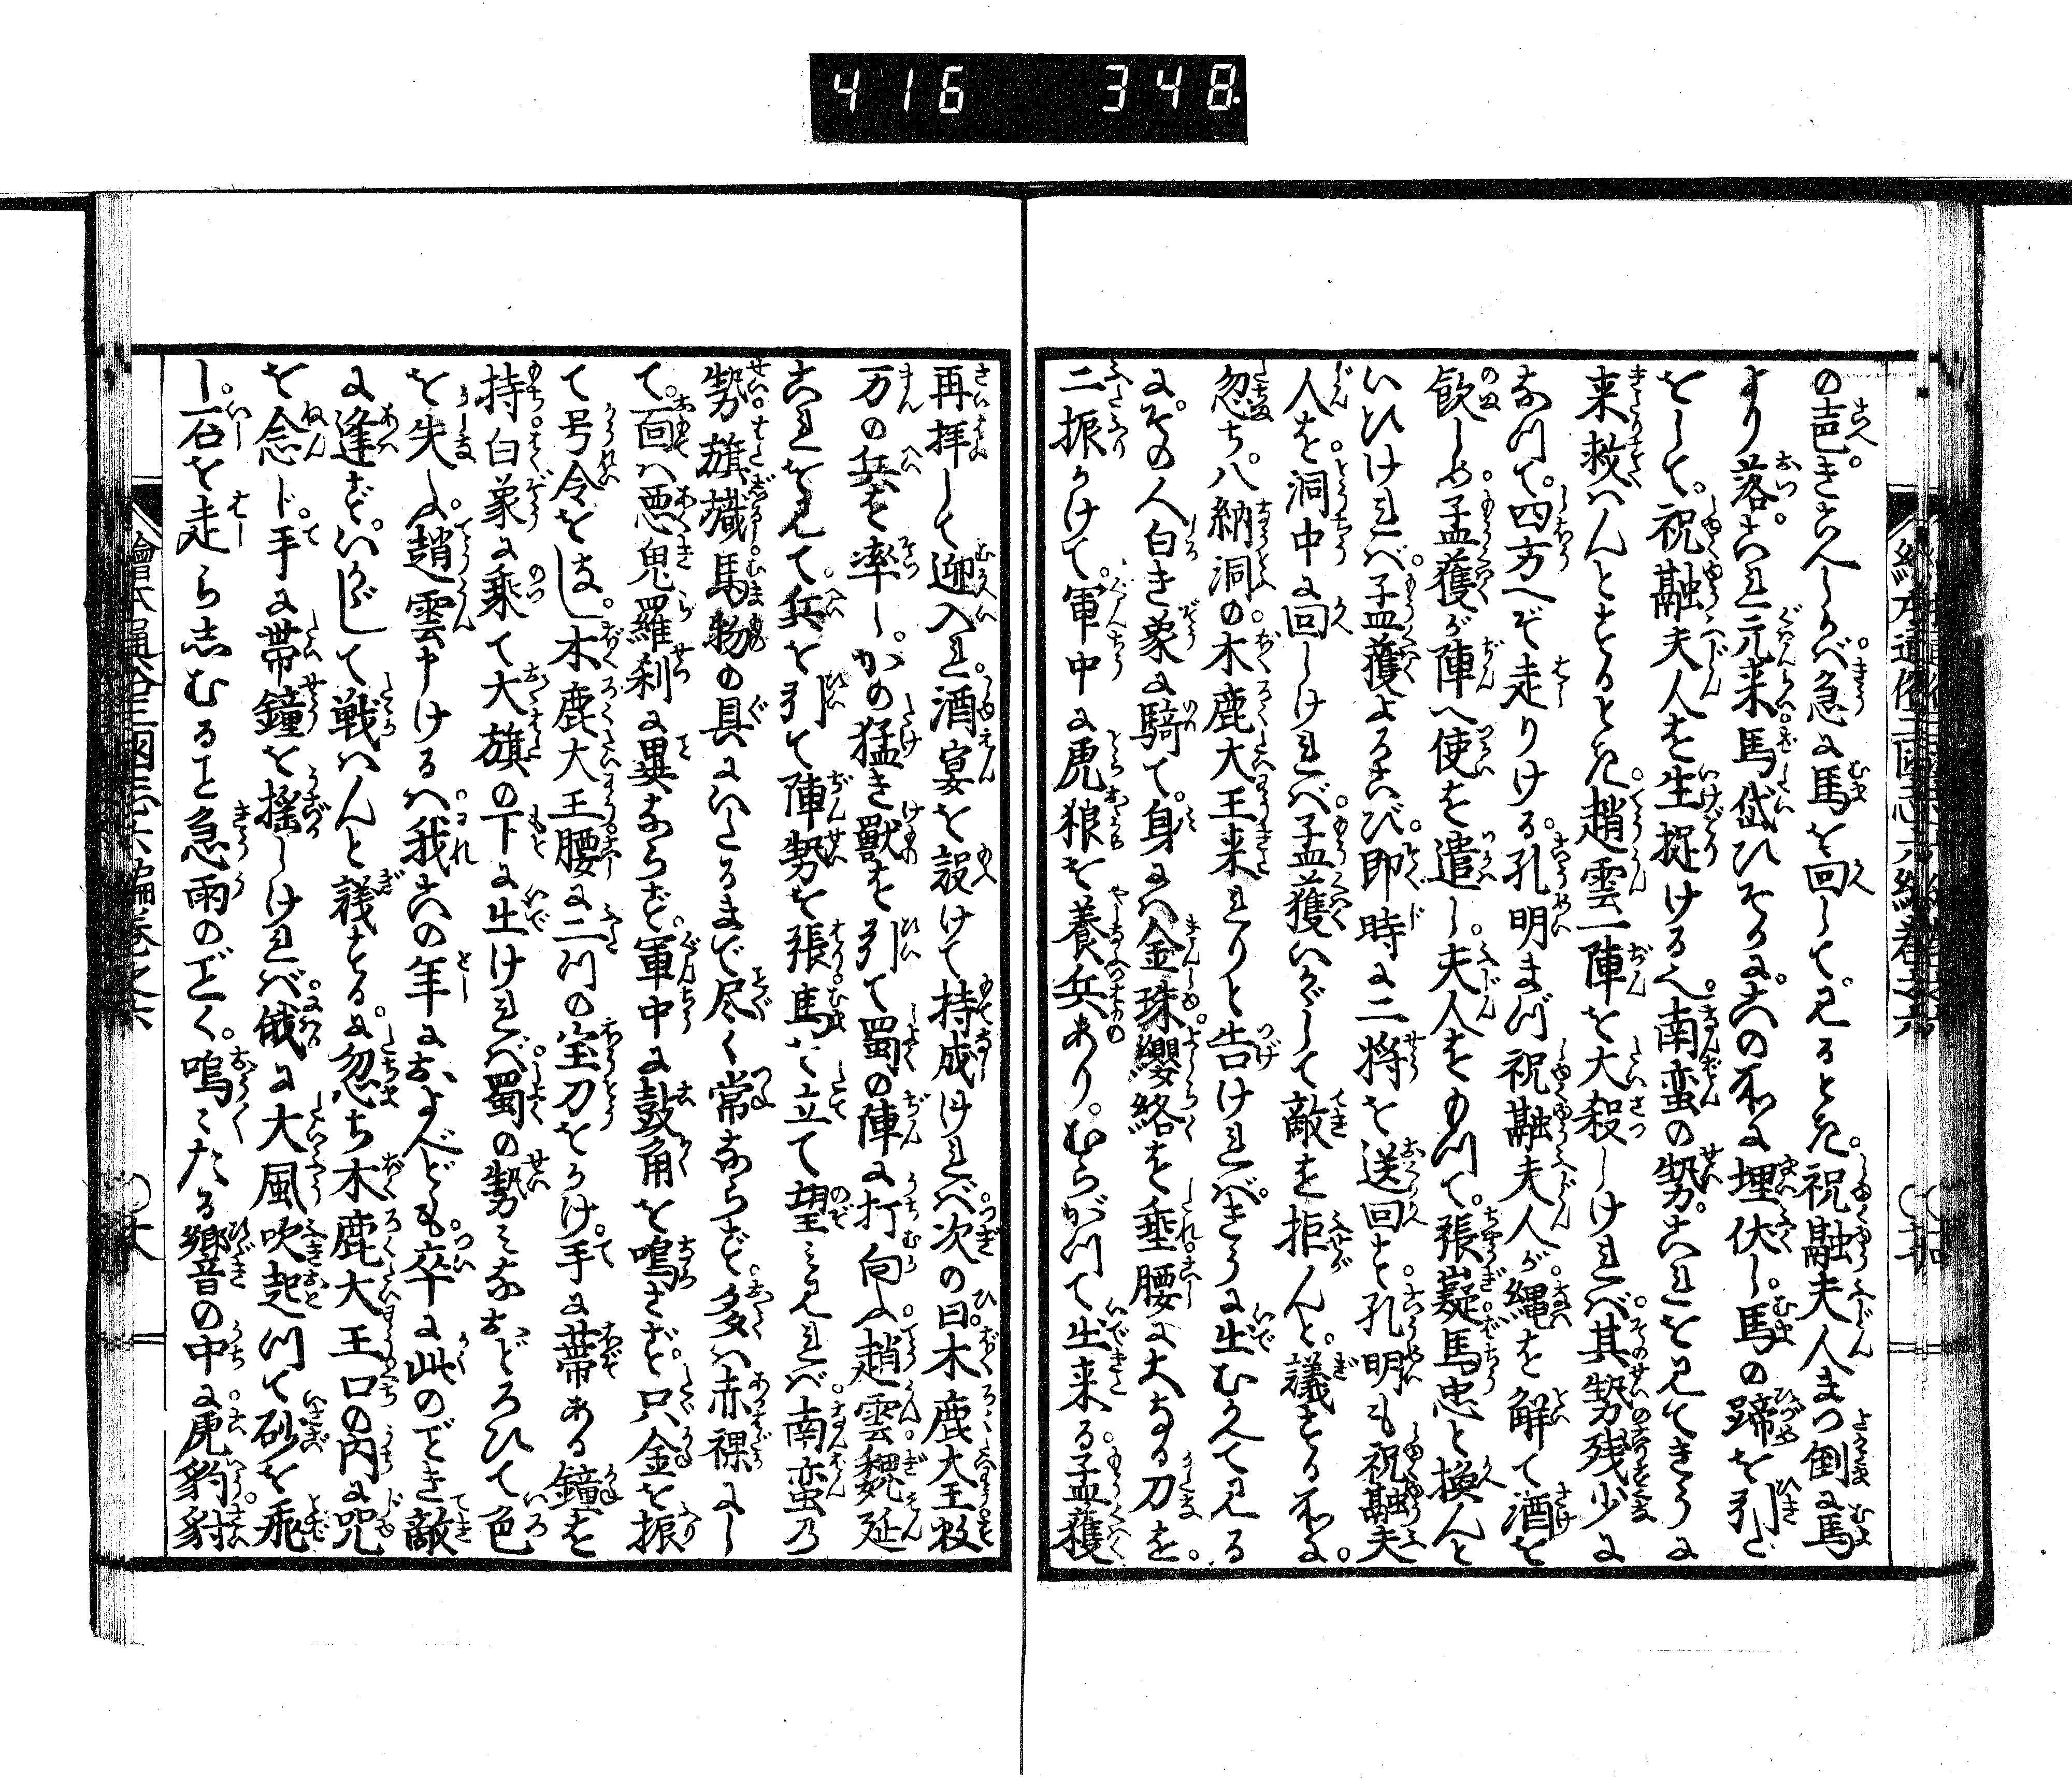 416 348
の声きこへしかば急に馬を回して見るとき祝融夫人まつ倒に馬
より落これ元来馬岱ひそかに此の所に埋伏し馬の蹄を引ど
をして祝融夫人を生捉ける也南蛮の勢これを見てきうに
来救はんとするとき趙雲一陣を大殺しければ其勢残少に
なつて四方へぞ走りける孔明まづ祝融夫人が縄を解て酒を
飲しめ孟獲が陣へ使を遣し夫人をもつて張嶷馬忠と換んと
いひければ孟獲よろこび即時に二将を送回す孔明も祝融夫
人を洞中に回しければ孟獲いかゞして敵を拒んと議する所に
忽ち八納洞の木鹿大王来れりと告ければきうに出むかへて見る
に其の人白き象に騎て身には金珠纓絡を垂腰に大なる刀を
二振かけて軍中に虎狼を養兵ありむらがつて出来る孟獲
再拝して迎入れ酒宴を設けて持成ければ次の日木鹿大王数
万の兵を率しかの猛き獣を引て蜀の陣に打向ふ趙雲魏延
これを見て兵を引て陣勢を張馬を立て望み見れば南蛮の
勢旗幟馬物の具にいたるまで尽く常ならず多は赤裸にし
て面は悪鬼羅刹に異ならず軍中に鼓角を鳴さず只金を振
て号令をほし木鹿大王腰に二つの宝刀をかけ手に帯ある鐘を
持白象に乗て大旗の下に出ければ蜀の勢みなおどろひて色
を失ふ趙雲申けるは我この年におよべども卒に此のごとき敵
に逢ずいかゞして戦はんと議するに忽ち木鹿大王口の内に咒
を念じ手に帯鐘を揺しければ俄に大風吹起つて砂を飛
し石を走らしむること急雨のごとく嗚々たる響音の中に虎豹豺